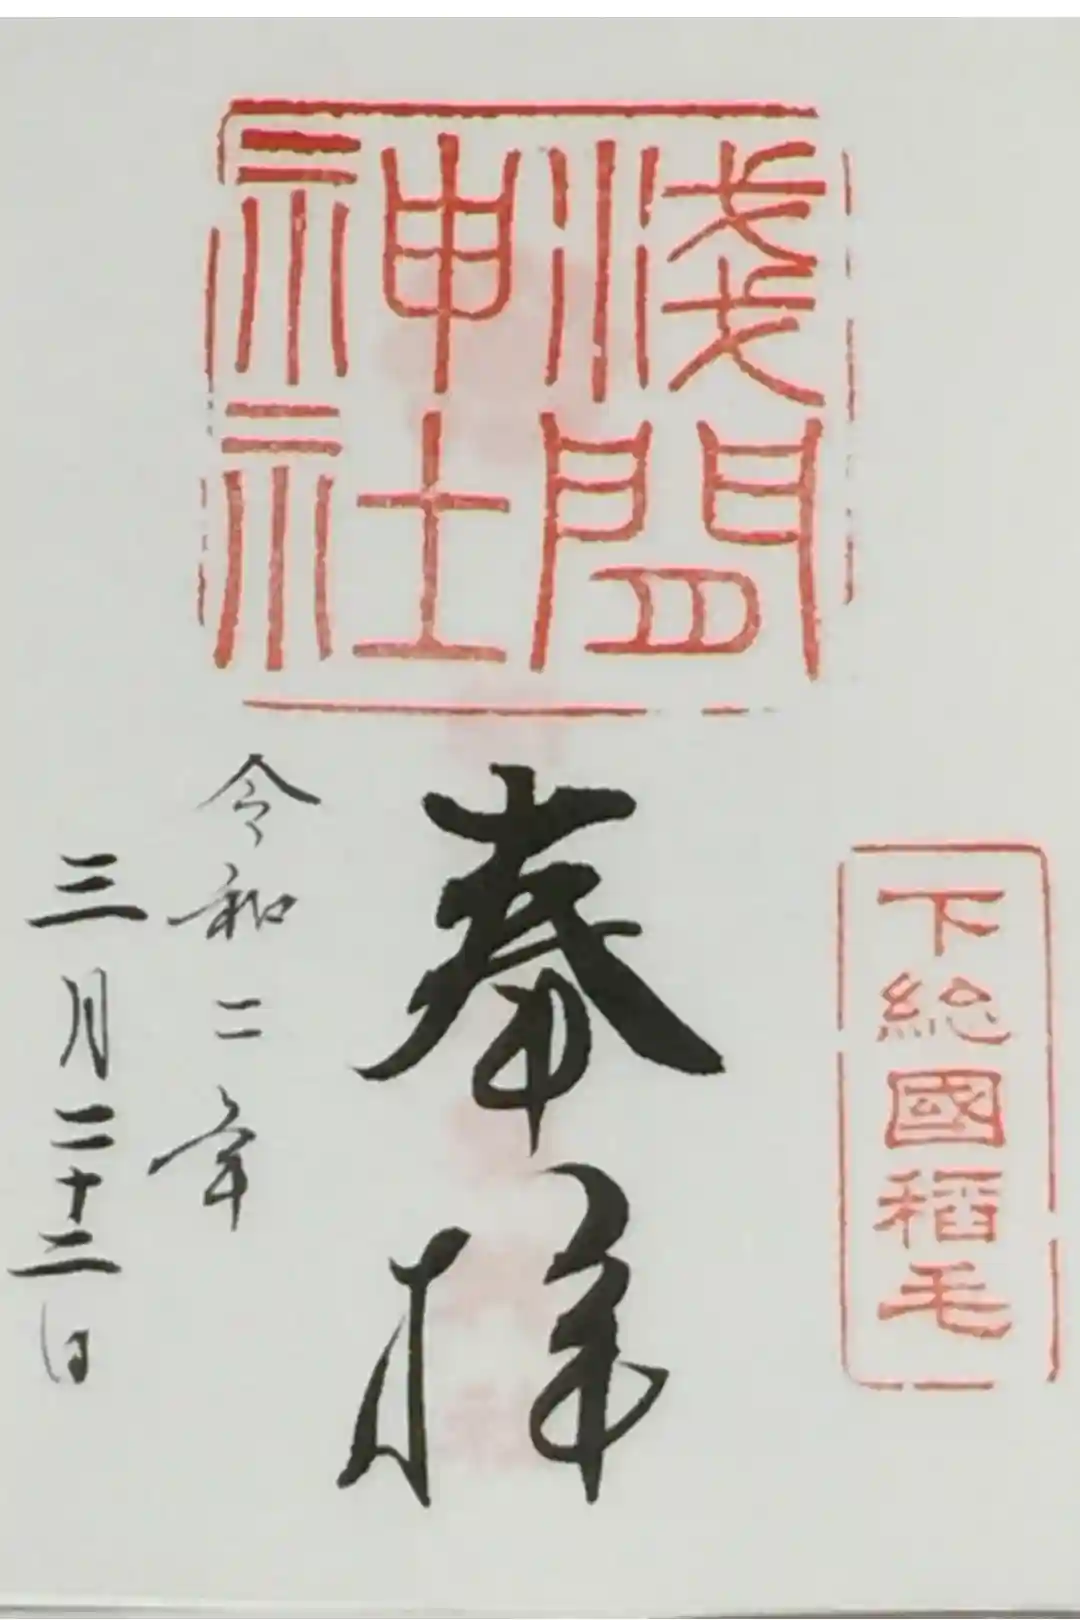 淺間
神社
下総國稲毛
奉拝
令和二年
三月二十二日